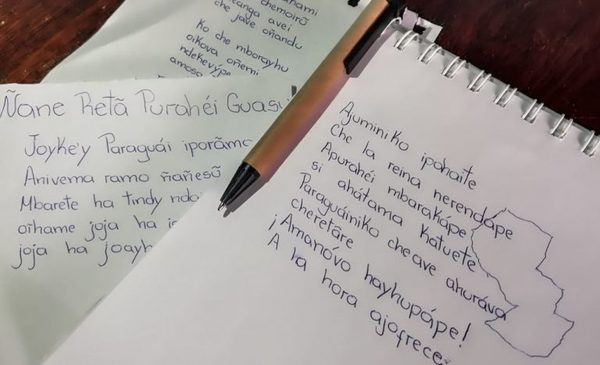 chemoirũ
avei
che jave oñandu
Ko che mborayhu
oikova oñemi
ndekevýpe
Ñane Retã Purahéi Guasu
Joyke'y Paraguái iporãma
Anivema ramo ñañesũ
Mbarete ha tindy
oĩhame joja ha
joja ha
Ajuminiko ipohaite
Che la reina nerendápe
Apurahéi mbarakápe
si ahátama katuete
Paraguáiniko cheave ahuráva
cheretãre
¡Amanóvo hayhupápe!
A la hora ajofrece